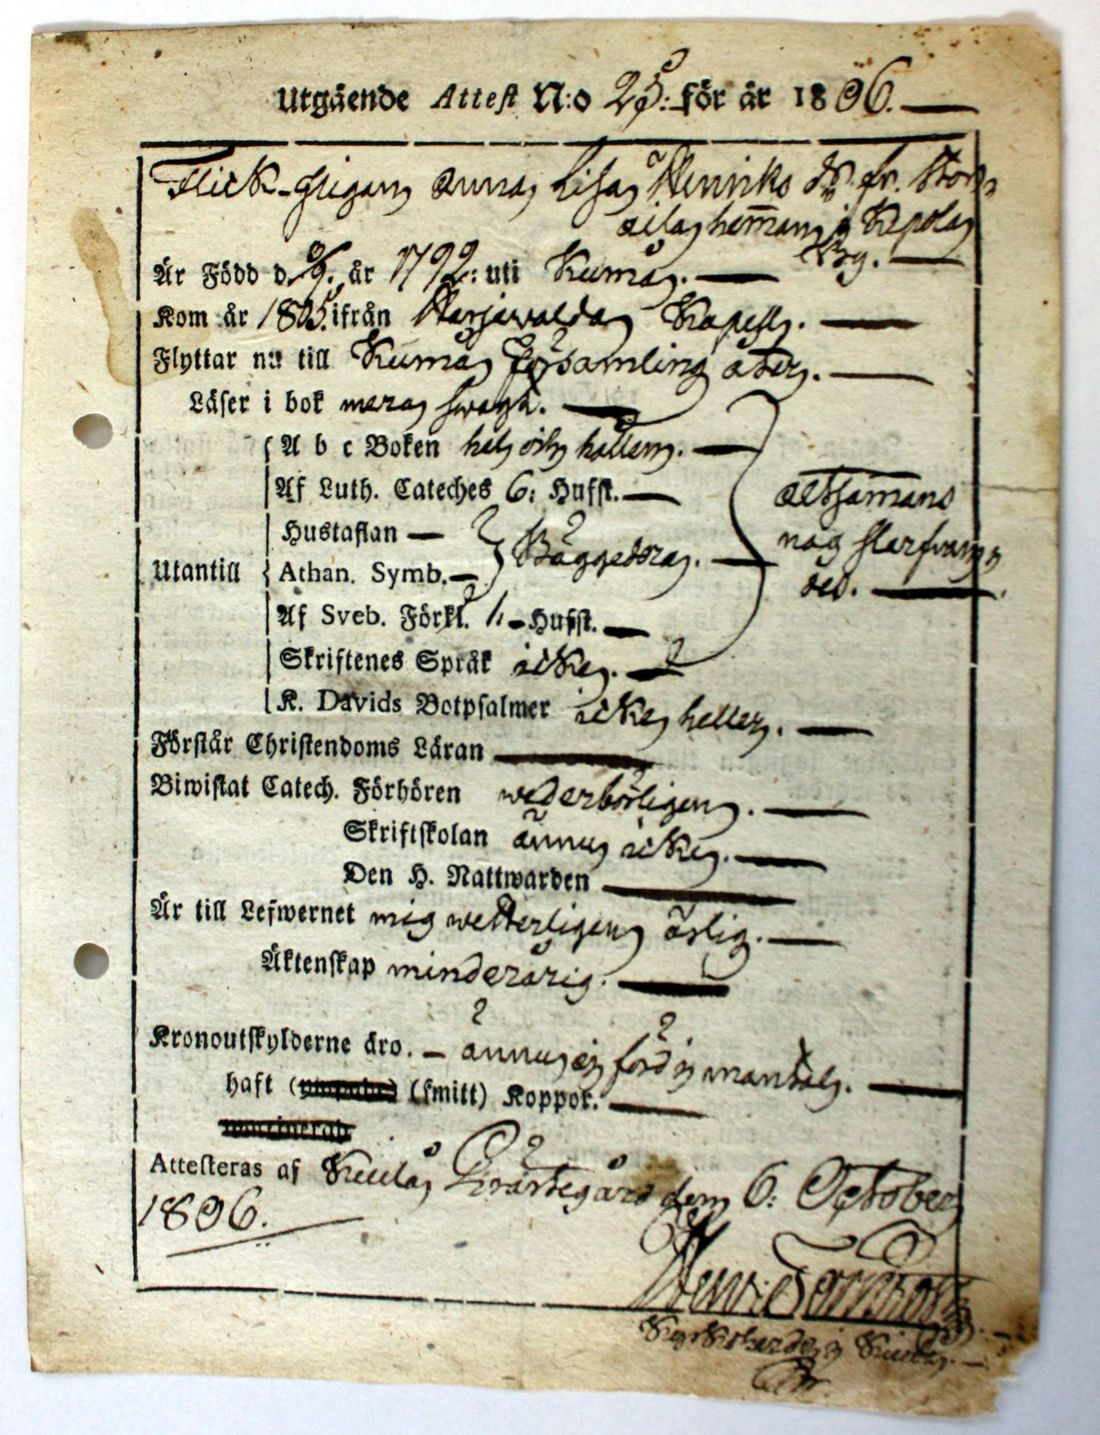 Utgående Attest N:o 25: för år 1806.
Flick-stigan Anna Lisa Henriks dr. fr.
heman i Kepola
By.
Är Född d. år 1792: uti Kumå.
Kom år 1805 ifrån Harjawalda Kapell.
Flyttar nu till Kumå Församling åter.
Läser i bok mera swagt.
A b c Boken hel och hållen.
Af Luth. Cateches 6: Hufst.
Hustaflan —
Athan. Symb. — Bäggedera.
altsamans
nog slarfvan
de.
Utantill
Af Sveb. Förkl. 1. - Hufst.
Skriftenes Språk icke.
K. Davids Botpsalmer icke heller.
Förstår Christendoms Läran
Biwistat Catech. Förhören wederbörligen.
Skriftskolan ännu icke.
Den H. Nattwarden
Är till Lefwernet mig wetterligen ärlig.
Äktenskap minderårig.
Kronoutskylderne äro. — ännu ej förd i mantal.
haft (smitt) Koppor.
Attesteras af Kiulå Prästegård den 6: October
1806.
Kyrkoherde i Kiulo.